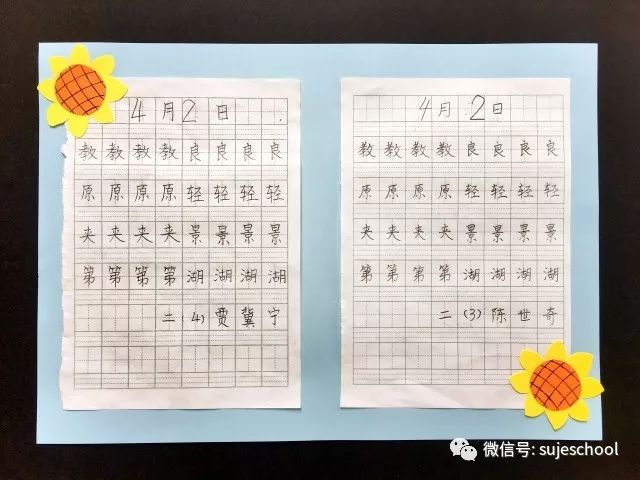 4月2日
教教教教良良良良
原原原原轻轻轻轻
夹夹夹夹景景景景
第第第第湖湖湖湖
二(4)贾冀宁
4月2日
教教教教良良良良
原原原原轻轻轻轻
夹夹夹夹景景景景
第第第第湖湖湖湖
二(3)陈世奇
微信号: sujeschool